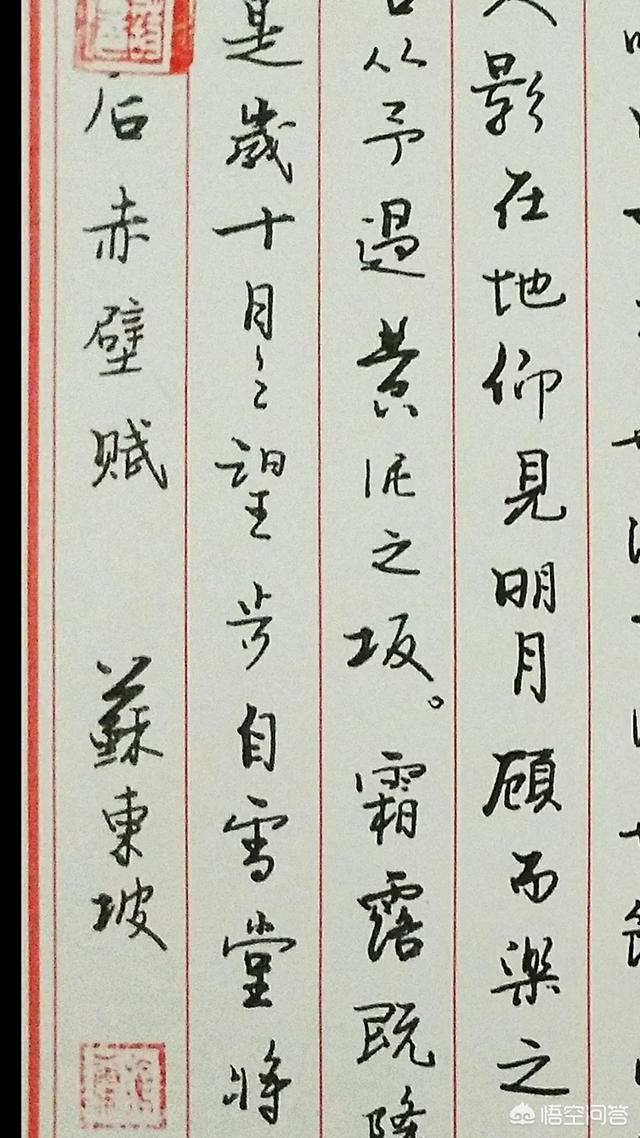 后赤壁赋 蘇東坡
是歲十月之望步自雪堂将
从予過黄泥之坂。霜露既降
人影在地仰見明月顧而楽之
悟空问答